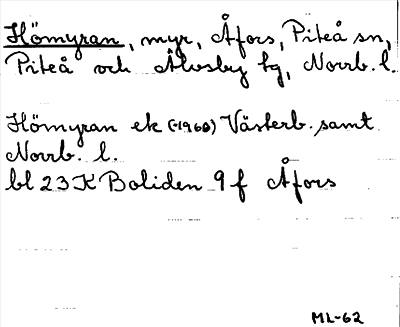 Hömyran, myr, Åfors, Piteå sn,
Piteå och Älvsby tg, Norrb. l.
Hömyran ek (-1960) Västerb. samt
Norrb. l.
bl 23 K Boliden 9 f Åfors
ML-62